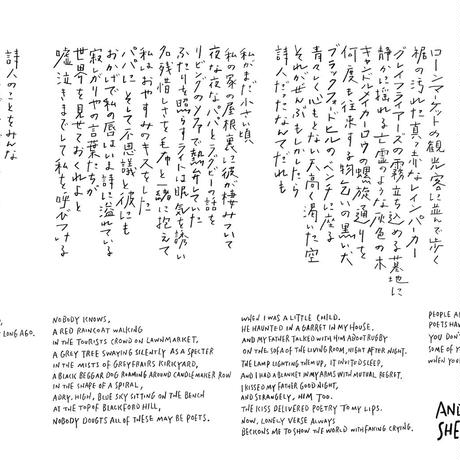 ローンマーケットの観光客に並んで歩く
裾の汚れた真っ赤なレインパーカー
グレイフライアーズの霧立ち込める墓地に
静かに揺れる亡霊のような灰色の木
キャンドルメイカーロウの螺旋通りを
何度も往来する物乞いの黒い犬
ブラックフォードヒルのベンチに座る
青々しく心もとない天高く渇いた空
それがぜんぶもしかしたら
詩人だったなんてだれも
私がまだ小さい頃
私の家の屋根裏に彼が棲みついて
夜な夜なパパとラグビーの話を
リビングのソファで熱弁していた
ふたりを照らすライトは眠気を誘い
名残惜しさを毛布と一緒に抱えて
私はおやすみのキスをした
パパに そして不思議と彼にも
おかげで私の唇はいま詩に溢れている
寂しがりやの言葉たちが
世界を見せておくれよと
嘘泣きまでして私を呼びつける
詩人のことをみんな
LONG AGO.
NOBODY KNOWS,
A RED RAINCOAT WALKING
IN THE TOURISTS CROWD ON LAWNMARKET,
A GREY TREE SWAYING SILENTLY AS A SPECTER
IN THE MISTS OF GREYFAIRS KIRKYARD,
A BLACK BEGGAR DOG ROAMING AROUND CANDLEMAKER ROW
IN THE SHAPE OF A SPIRAL,
A DRY, HIGH, BLUE SKY SITTING ON THE BENCH
AT THE TOP OF BLACKFORD HILL,
NOBODY DOUGTS ALL OF THESE MAY BE POETS.
WHEN I WAS A LITTLE CHILD.
HE HAUNTED IN A GARRET IN MY HOUSE,
AND MY FATHER TALKED WITH HIM ABOUT RUGBY
ON THE SOFA OF THE LIVING ROOM, NIGHT AFTER NIGHT.
THE LAMP LIGHTING THEM UP, IT INVITED SLEEP,
AND I HAD A BLANKET IN MY ARMS WITH MUTUAL REGRET.
I KISSED MY FATHER GOOD NIGHT,
AND STRANGELY, HIM TOO.
THE KISS DELIVERED POETRY TO MY LIPS.
NOW, LONELY VERSE ALWAYS
BECKONS ME TO SHOW THE WORLD WITH FAKING CRYING.
PEOPLE A
POETS HAV
YOU DON'
SOME OF Y
WHEN YOU
AND
SHE